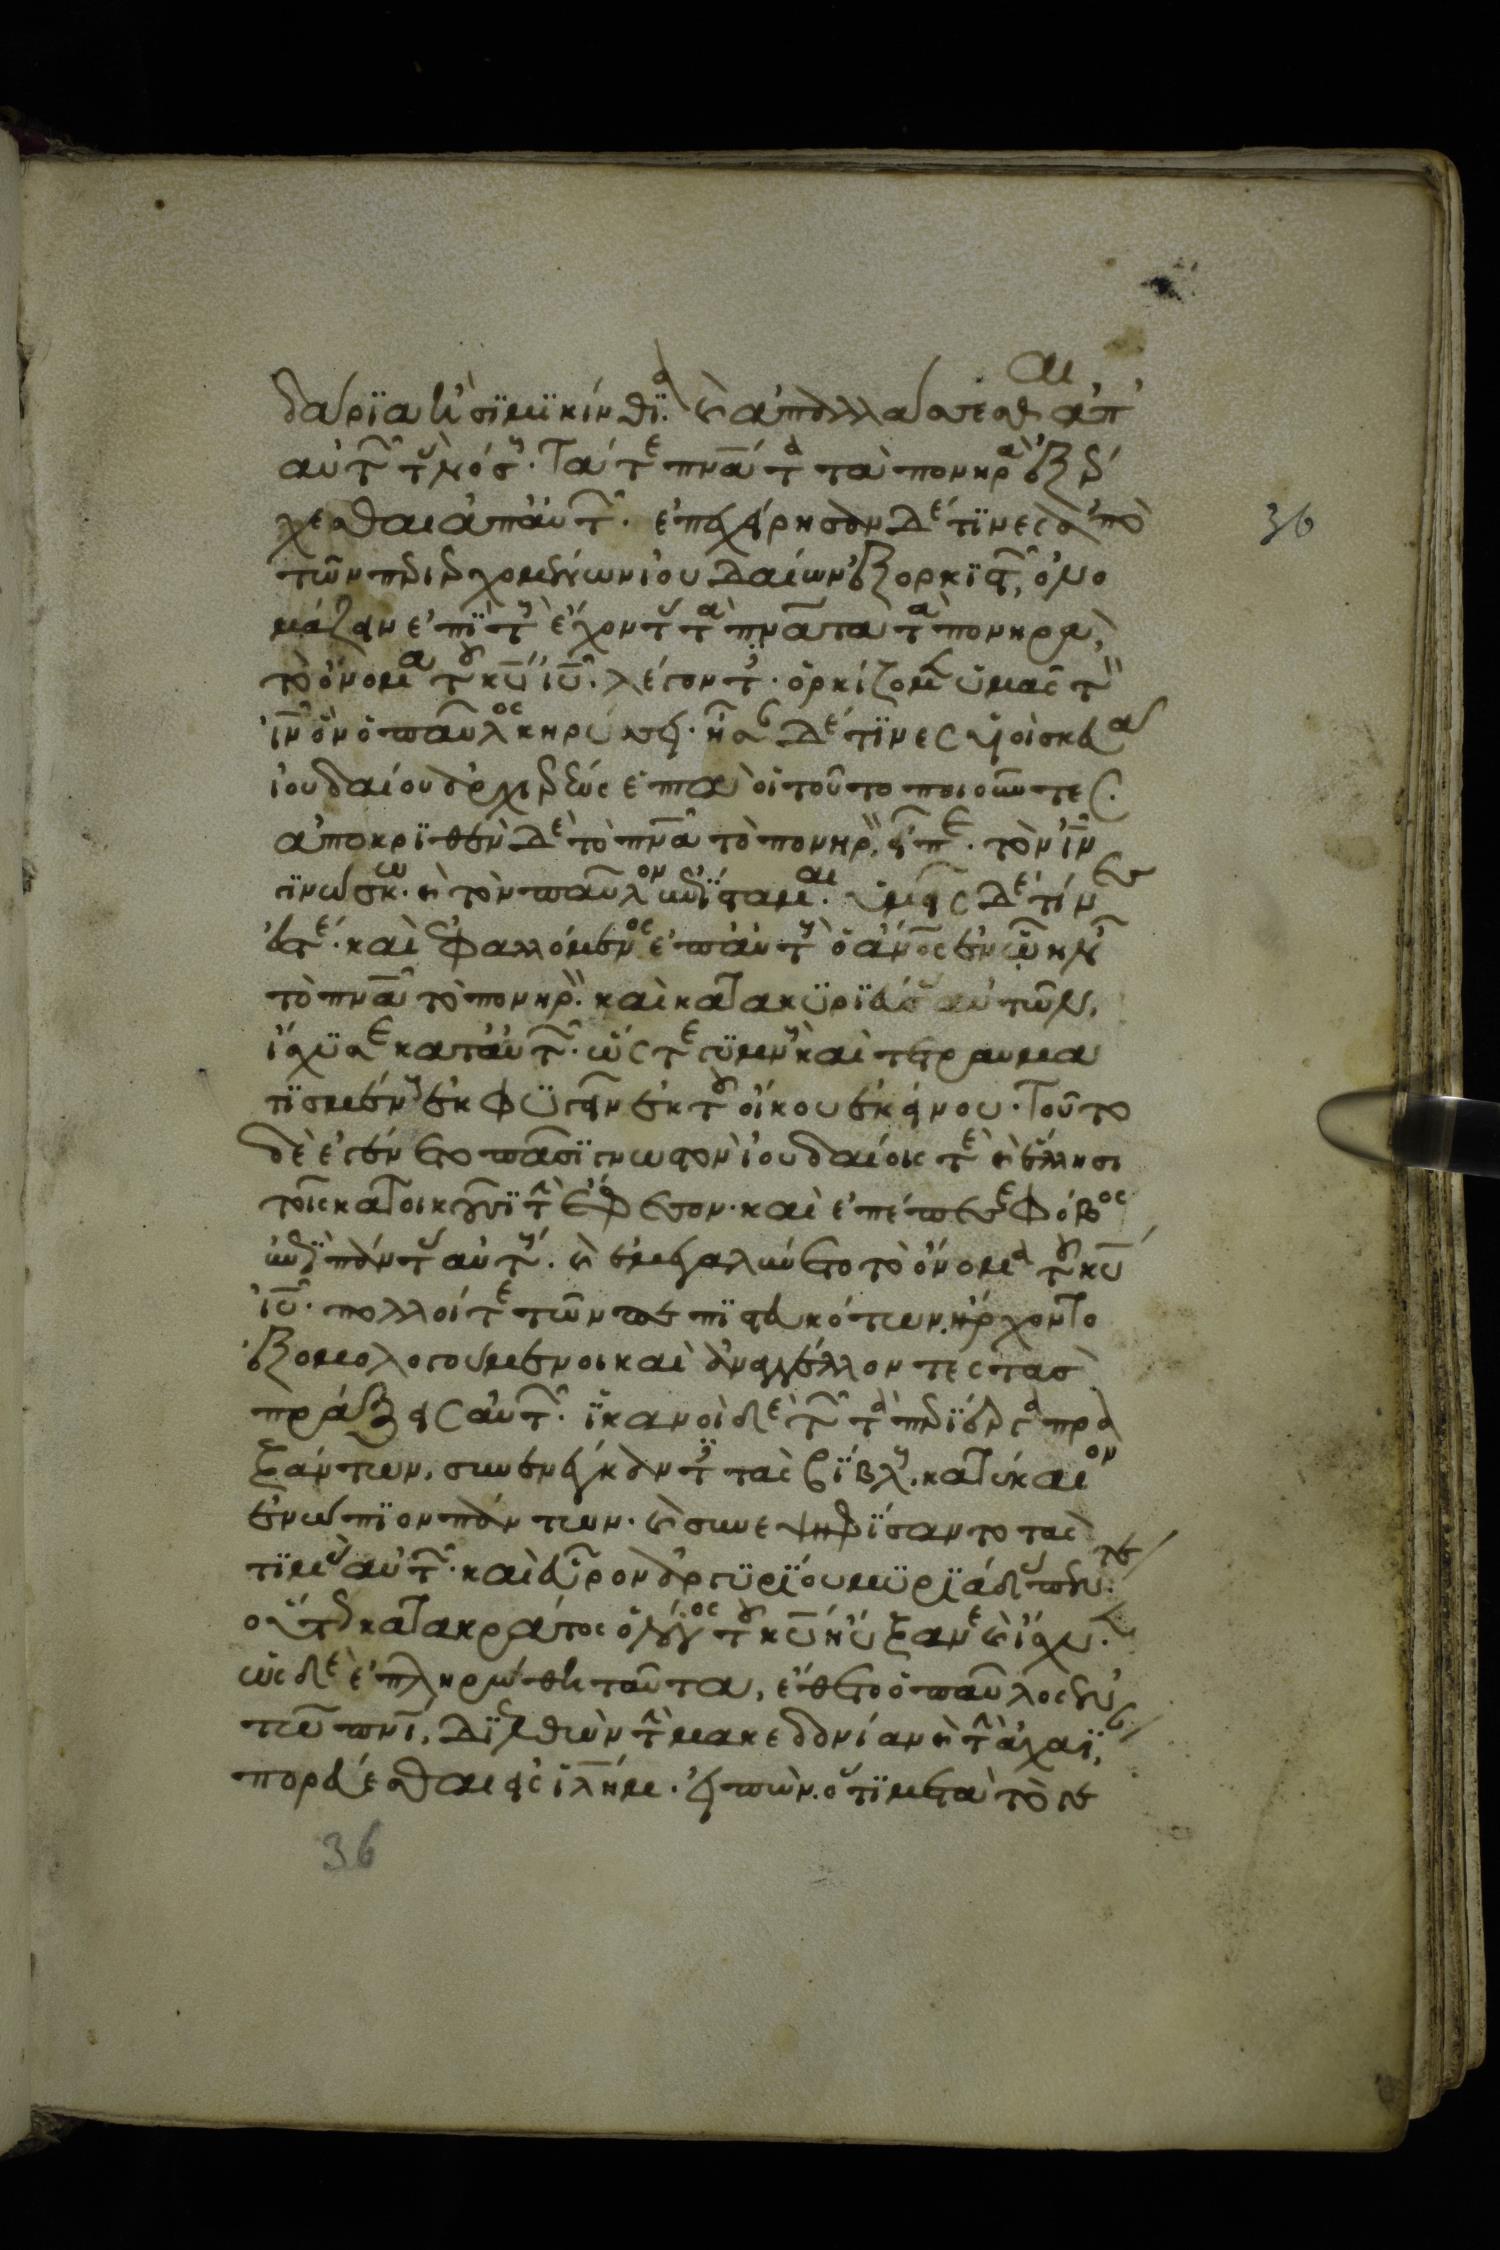 δάρια ἢ σιμικίνθια· καὶ ἀπαλλάσσεσθαι ἀπ'
αὐτῶν τὰς νόσους· Τά τε πνᾱτα τὰ πονηρὰ ἐξέρ
χεσθαι ἀπ' αὐτῶν· ἐπεχείρησαν δέ τινες ἀπὸ
36
τῶν περιερχομένων ἰουδαίων ἐξορκιστῶν, ὀνο
μάζειν ἐπὶ τοὺς ἔχοντας τὰ πνᾱτα τὰ πονηρὰ,
τὸ ὄνομα τοῦ κῡ ἰῡ· λέγοντες· ὁρκίζομεν ὑμᾶς τὸν
ἰν̄ ὃν ὁ παῦλος κηρύσσει· ἦσαν δέ τινες υἱοὶ σκευᾶ
ἰουδαίου ἀρχιερέως ἑπτὰ οἱ τοῦτο ποιοῦντες·
ἀποκριθὲν δὲ τὸ πνᾱ τὸ πονηρὸν, εἶπε· τὸν ἰν̄
γινώσκω· καὶ τὸν παῦλον ἐπίσταμαι· ὑμεῖς δὲ τίνες
ἐστέ· καὶ ἐφαλλόμενος ἐπ' αὐτοὺς ὁ ἀν̄ος ἐν ᾧ ἦν
τὸ πνᾱ τὸ πονηρὸν· καὶ κατακυριεύσας αὐτῶν,
ἴσχυσε κατ' αὐτῶν· ὥστε γυμνοὺς καὶ τετραυμα
τισμένους ἐκφυγεῖν ἐκ τοῦ οἴκου ἐκείνου· Τοῦτο
δὲ ἐγένετο πᾶσι γνωστὸν ἰουδαίοις τε καὶ ἕλλησι
τοῖς κατοικοῦσι τὴν ἔφεσον· καὶ ἐπέπεσε φόβος
ἐπὶ πάντας αὐτούς· καὶ ἐμεγαλύνετο τὸ ὄνομα τοῦ κῡ
ἰῡ· πολλοί τε τῶν πεπιστευκότων, ἤρχοντο
ἐξομολογούμενοι καὶ ἀναγγέλλοντες τὰς
πράξεις αὐτῶν· ἱκανοὶ δὲ τῶν τὰ περίεργα πρα
ξάντων, συνενέγκαντες τὰς βίβλους, κατέκαιον
ἐνώπιον πάντων· καὶ συνεψηφίσαντο τὰς
τιμὰς αὐτῶν· καὶ εὗρον ἀργυρίου μυριάδας πέντε·
οὕτω κατακράτος ὁ λόγος τοῦ κῡ ηὔξανε καὶ ἴσχυεν·
ὡς δὲ ἐπληρώθη ταῦτα, ἔθετο ὁ παῦλος ἐν
τῷ πνῑ, διελθὼν τὴν μακεδονίαν καὶ τὴν ἀχαΐαν,
πορεύεσθαι εἰς ἰλ̄ημ· εἰπὼν ὅτι μετὰ τὸ γε
36